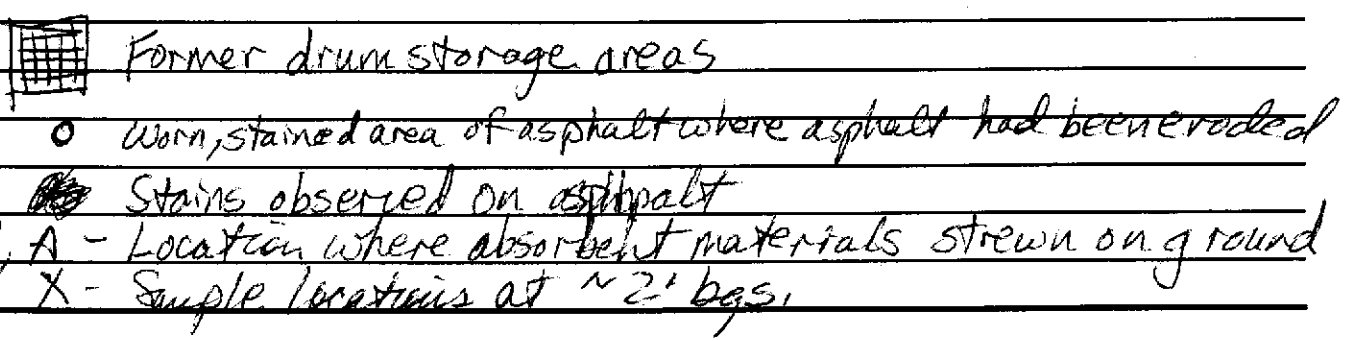 Former drum storage areas
o worn, stained area of asphalt where asphalt had been eroded
Stains observed on asphpalt
A - Location where absorbent materials strewn on ground
X - Sample locations at ~2' bgs.